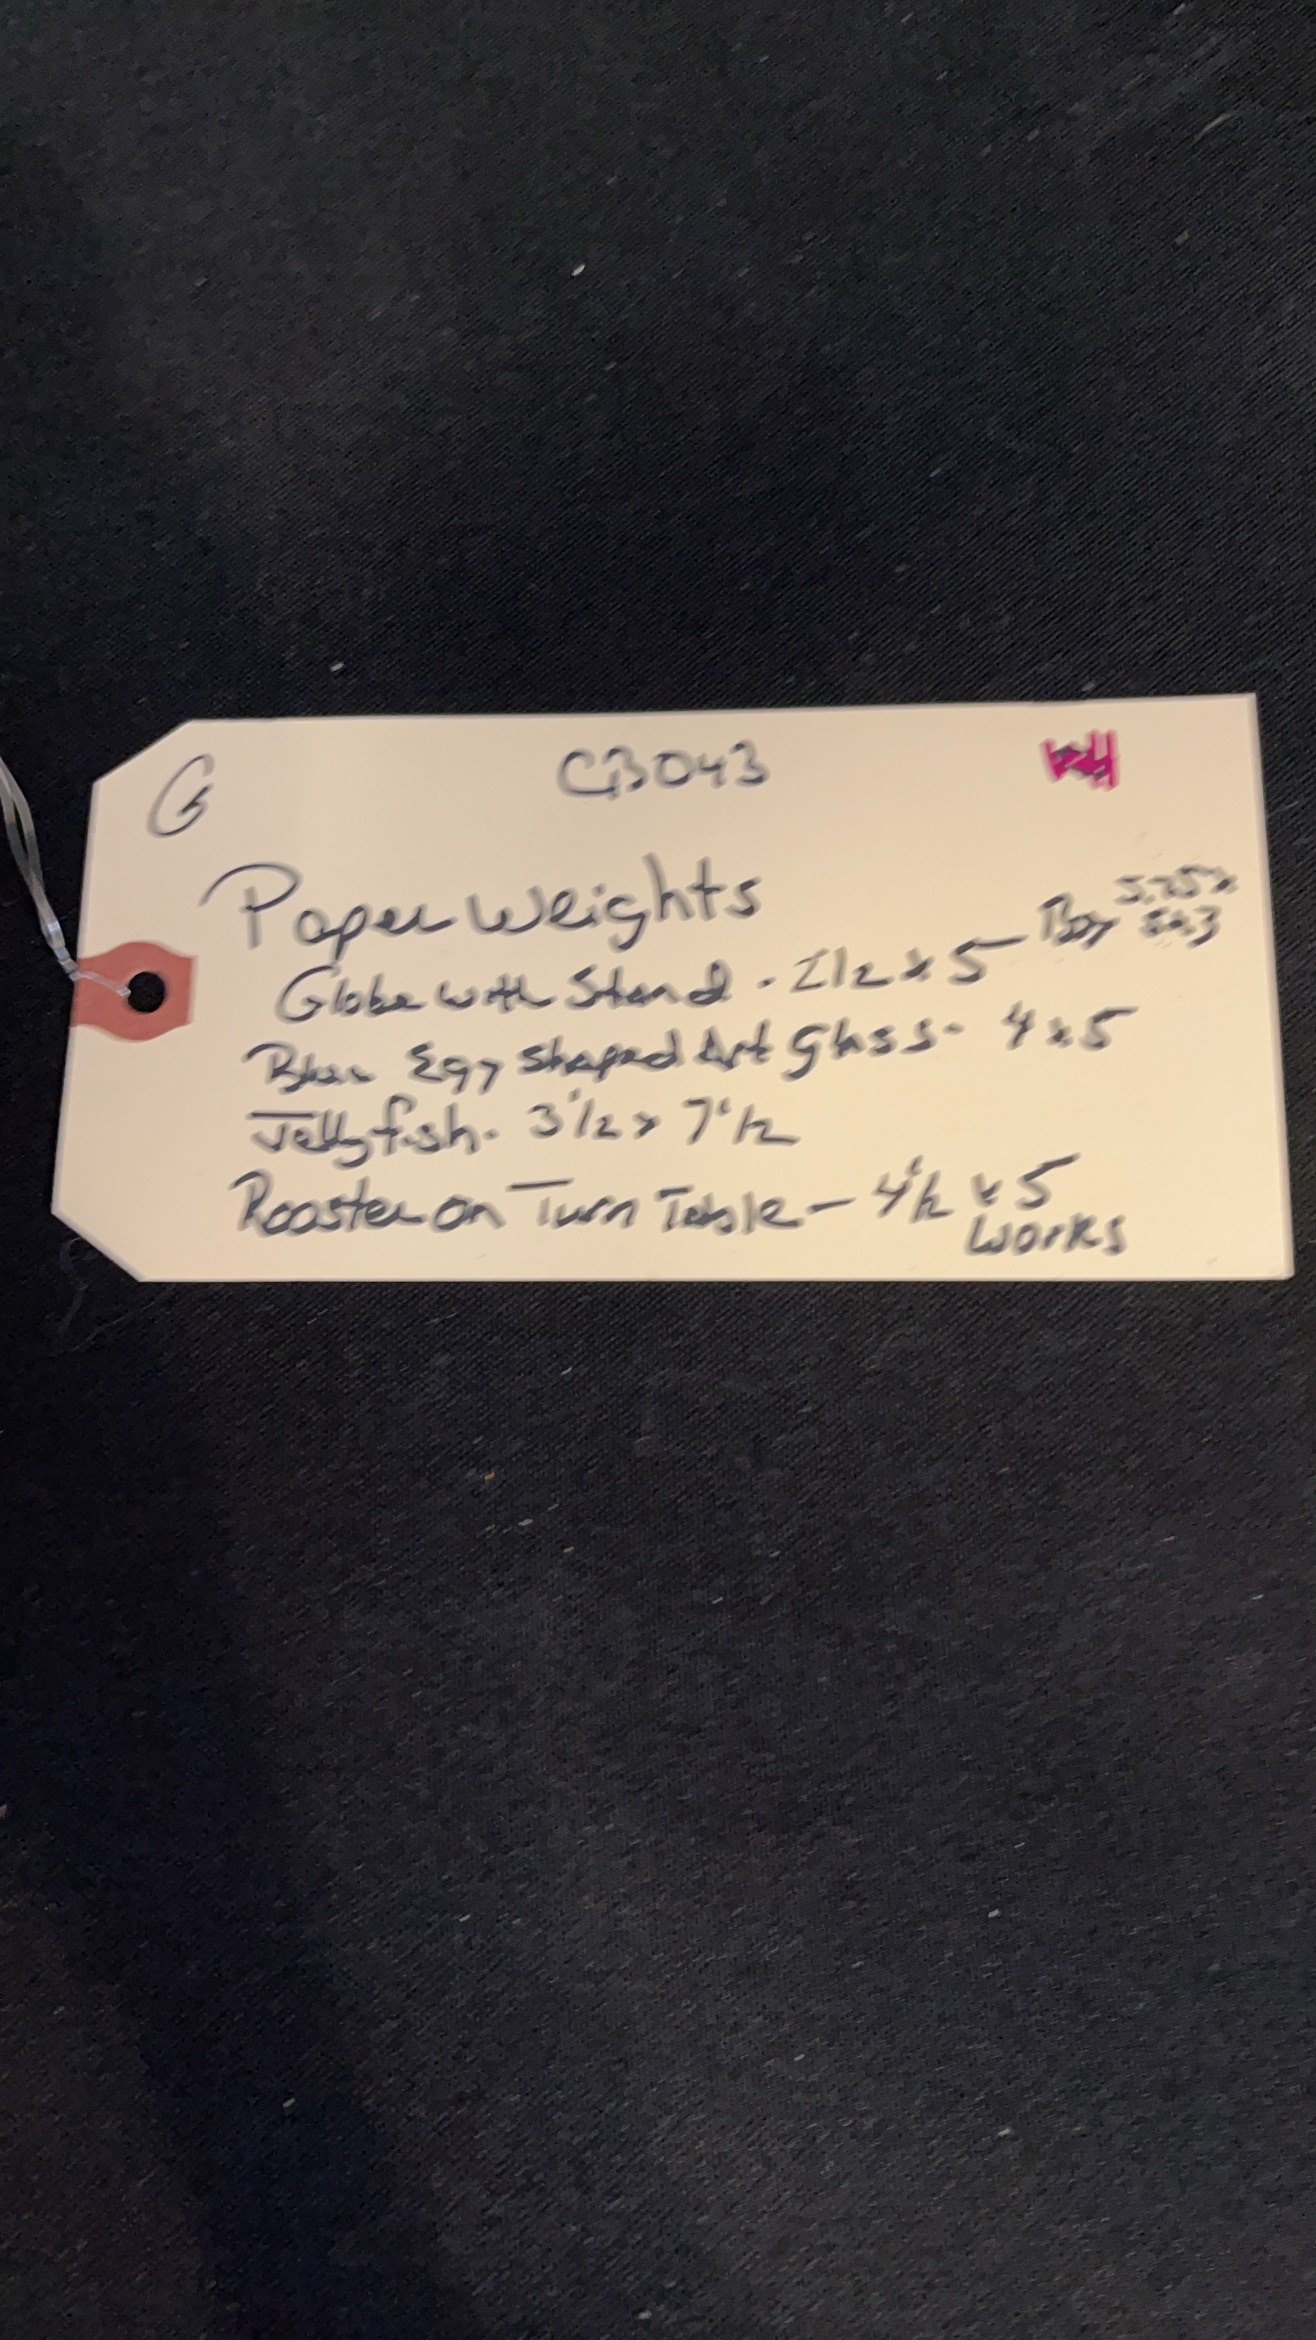 G
CB043
Paper Weights
Globe with Stand - 2 1/2 x 5 Box 5.75 x
Blue Egg Shaped Art Glass - 4 x 5
Jellyfish - 3 1/2 x 7 1/2
Rooster on Turn Table - 4 1/2 x 5
Works